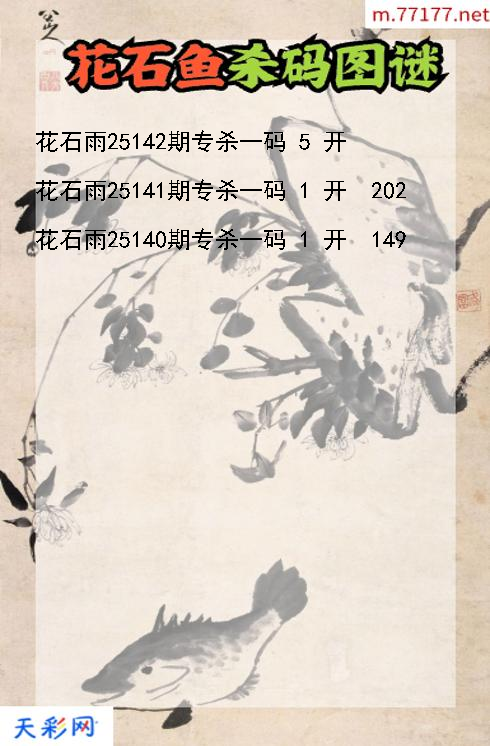 m.77177.net
花石鱼杀码图谜
花石雨25142期专杀一码 5 开
花石雨25141期专杀一码 1 开 202
花石雨25140期专杀一码 1 开 149
天彩网